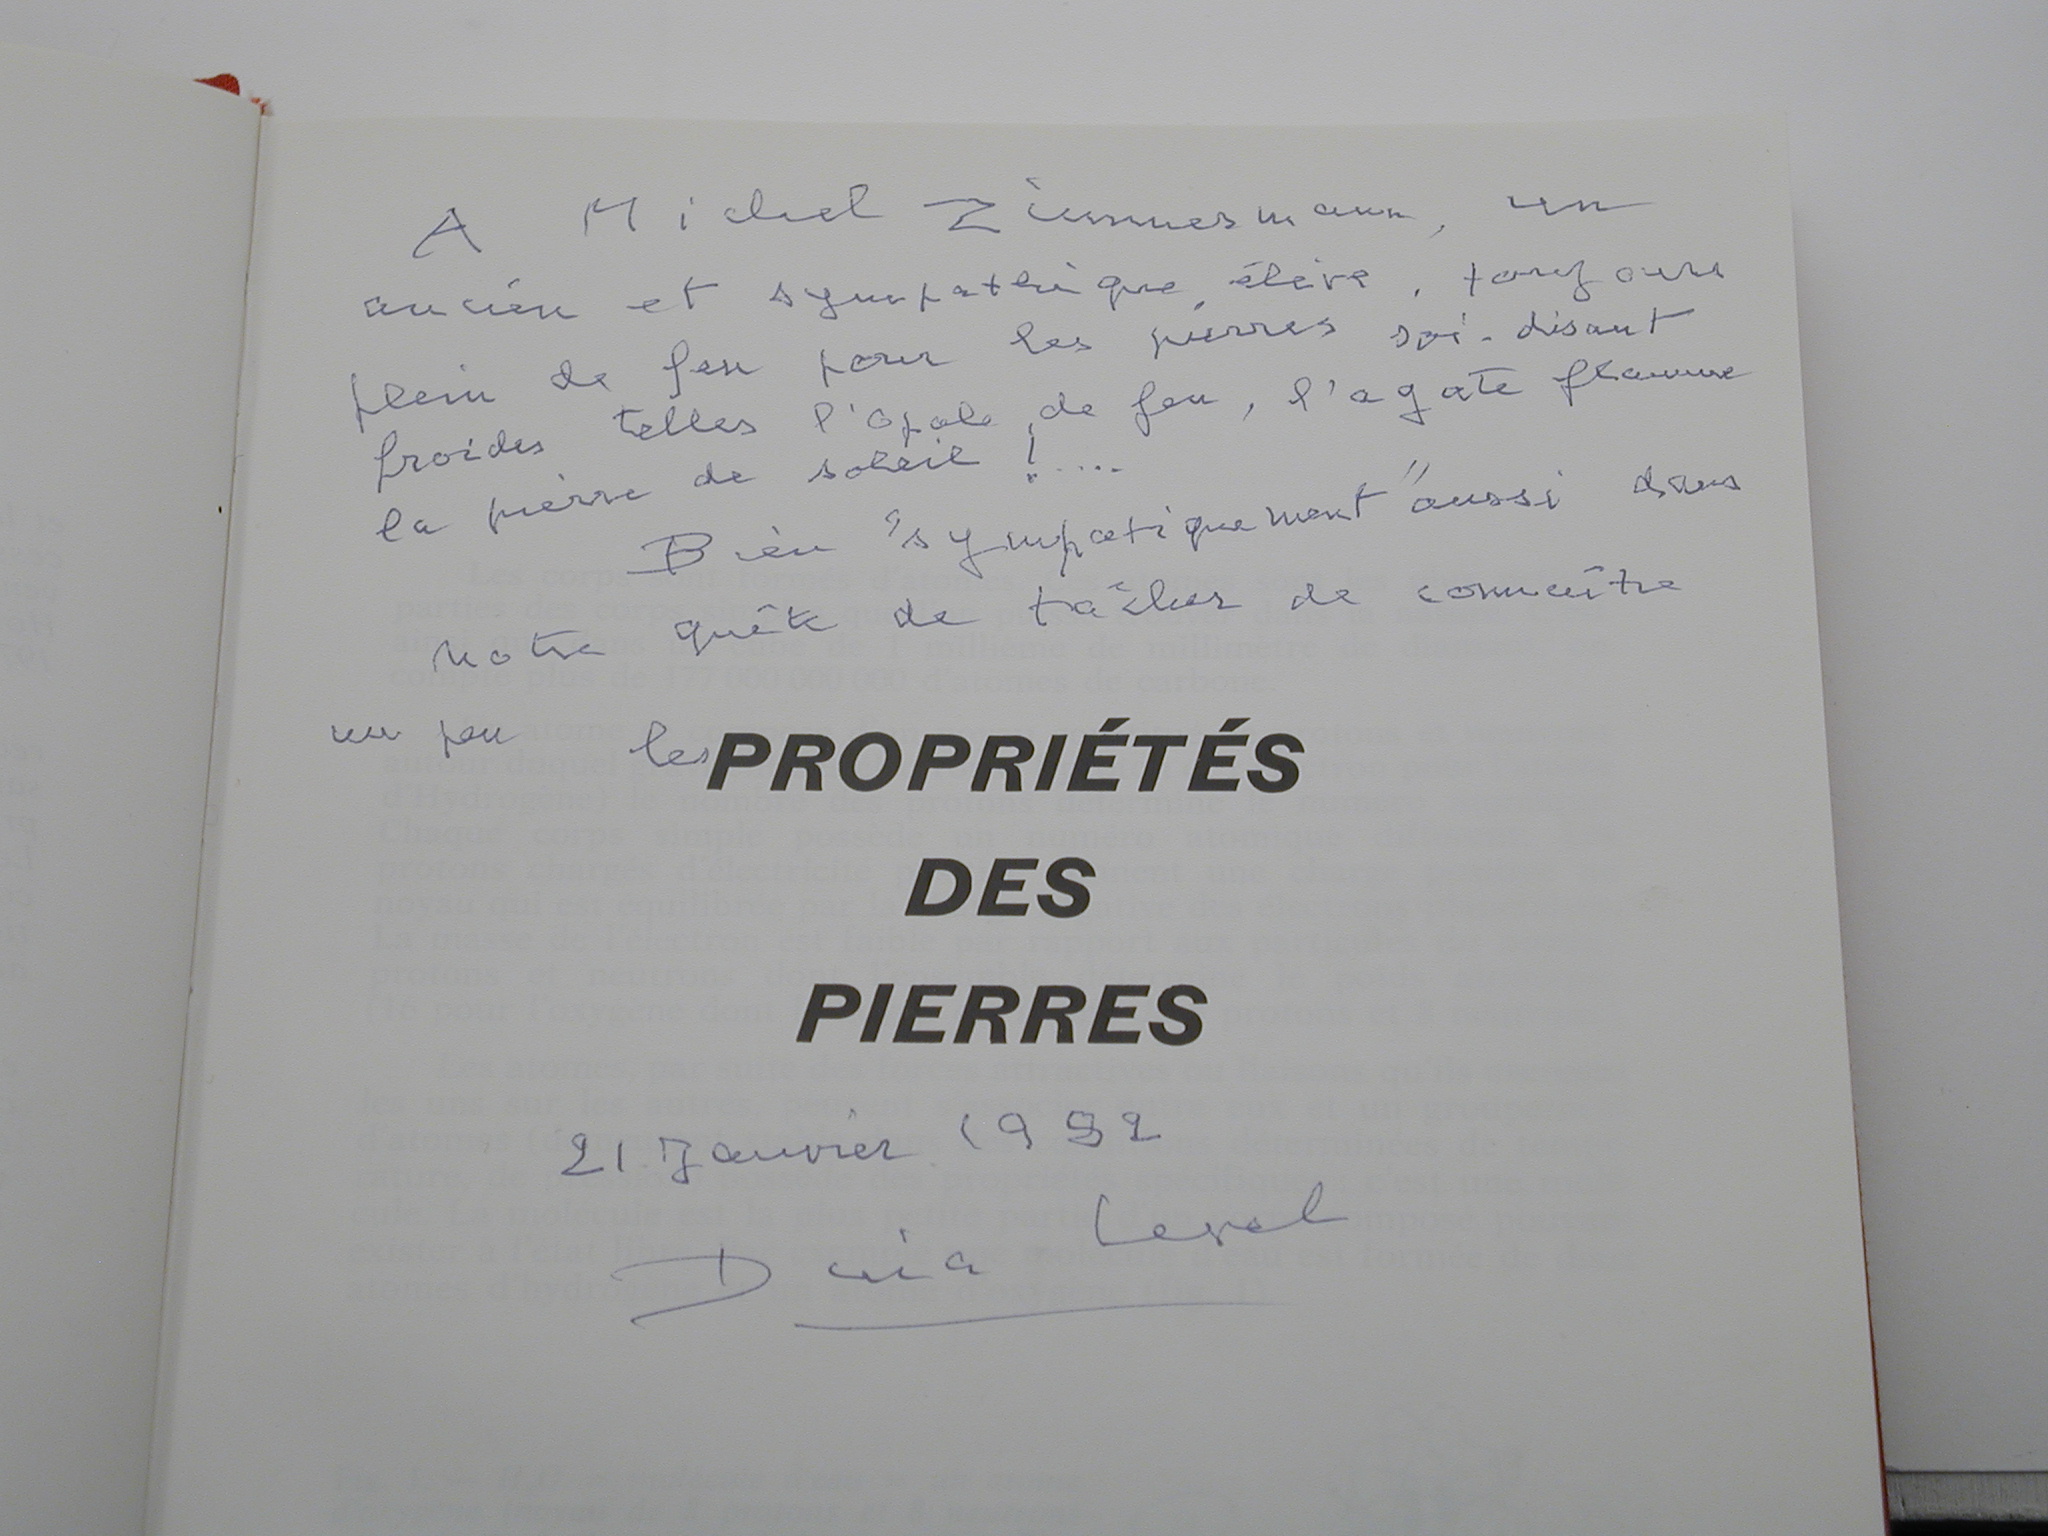 A Michel Zimmermann, un
ancien et sympathique élève, toujours
plein de feu pour les pierres soi-disant
froides telles l'opale de feu, l'agate flamme
la pierre de soleil !....
Bien "sympatiquement" aussi dans
notre quête de tâcher de connaître
un peu les PROPRIÉTÉS
DES
PIERRES
21 Janvier 1992
Dina Level